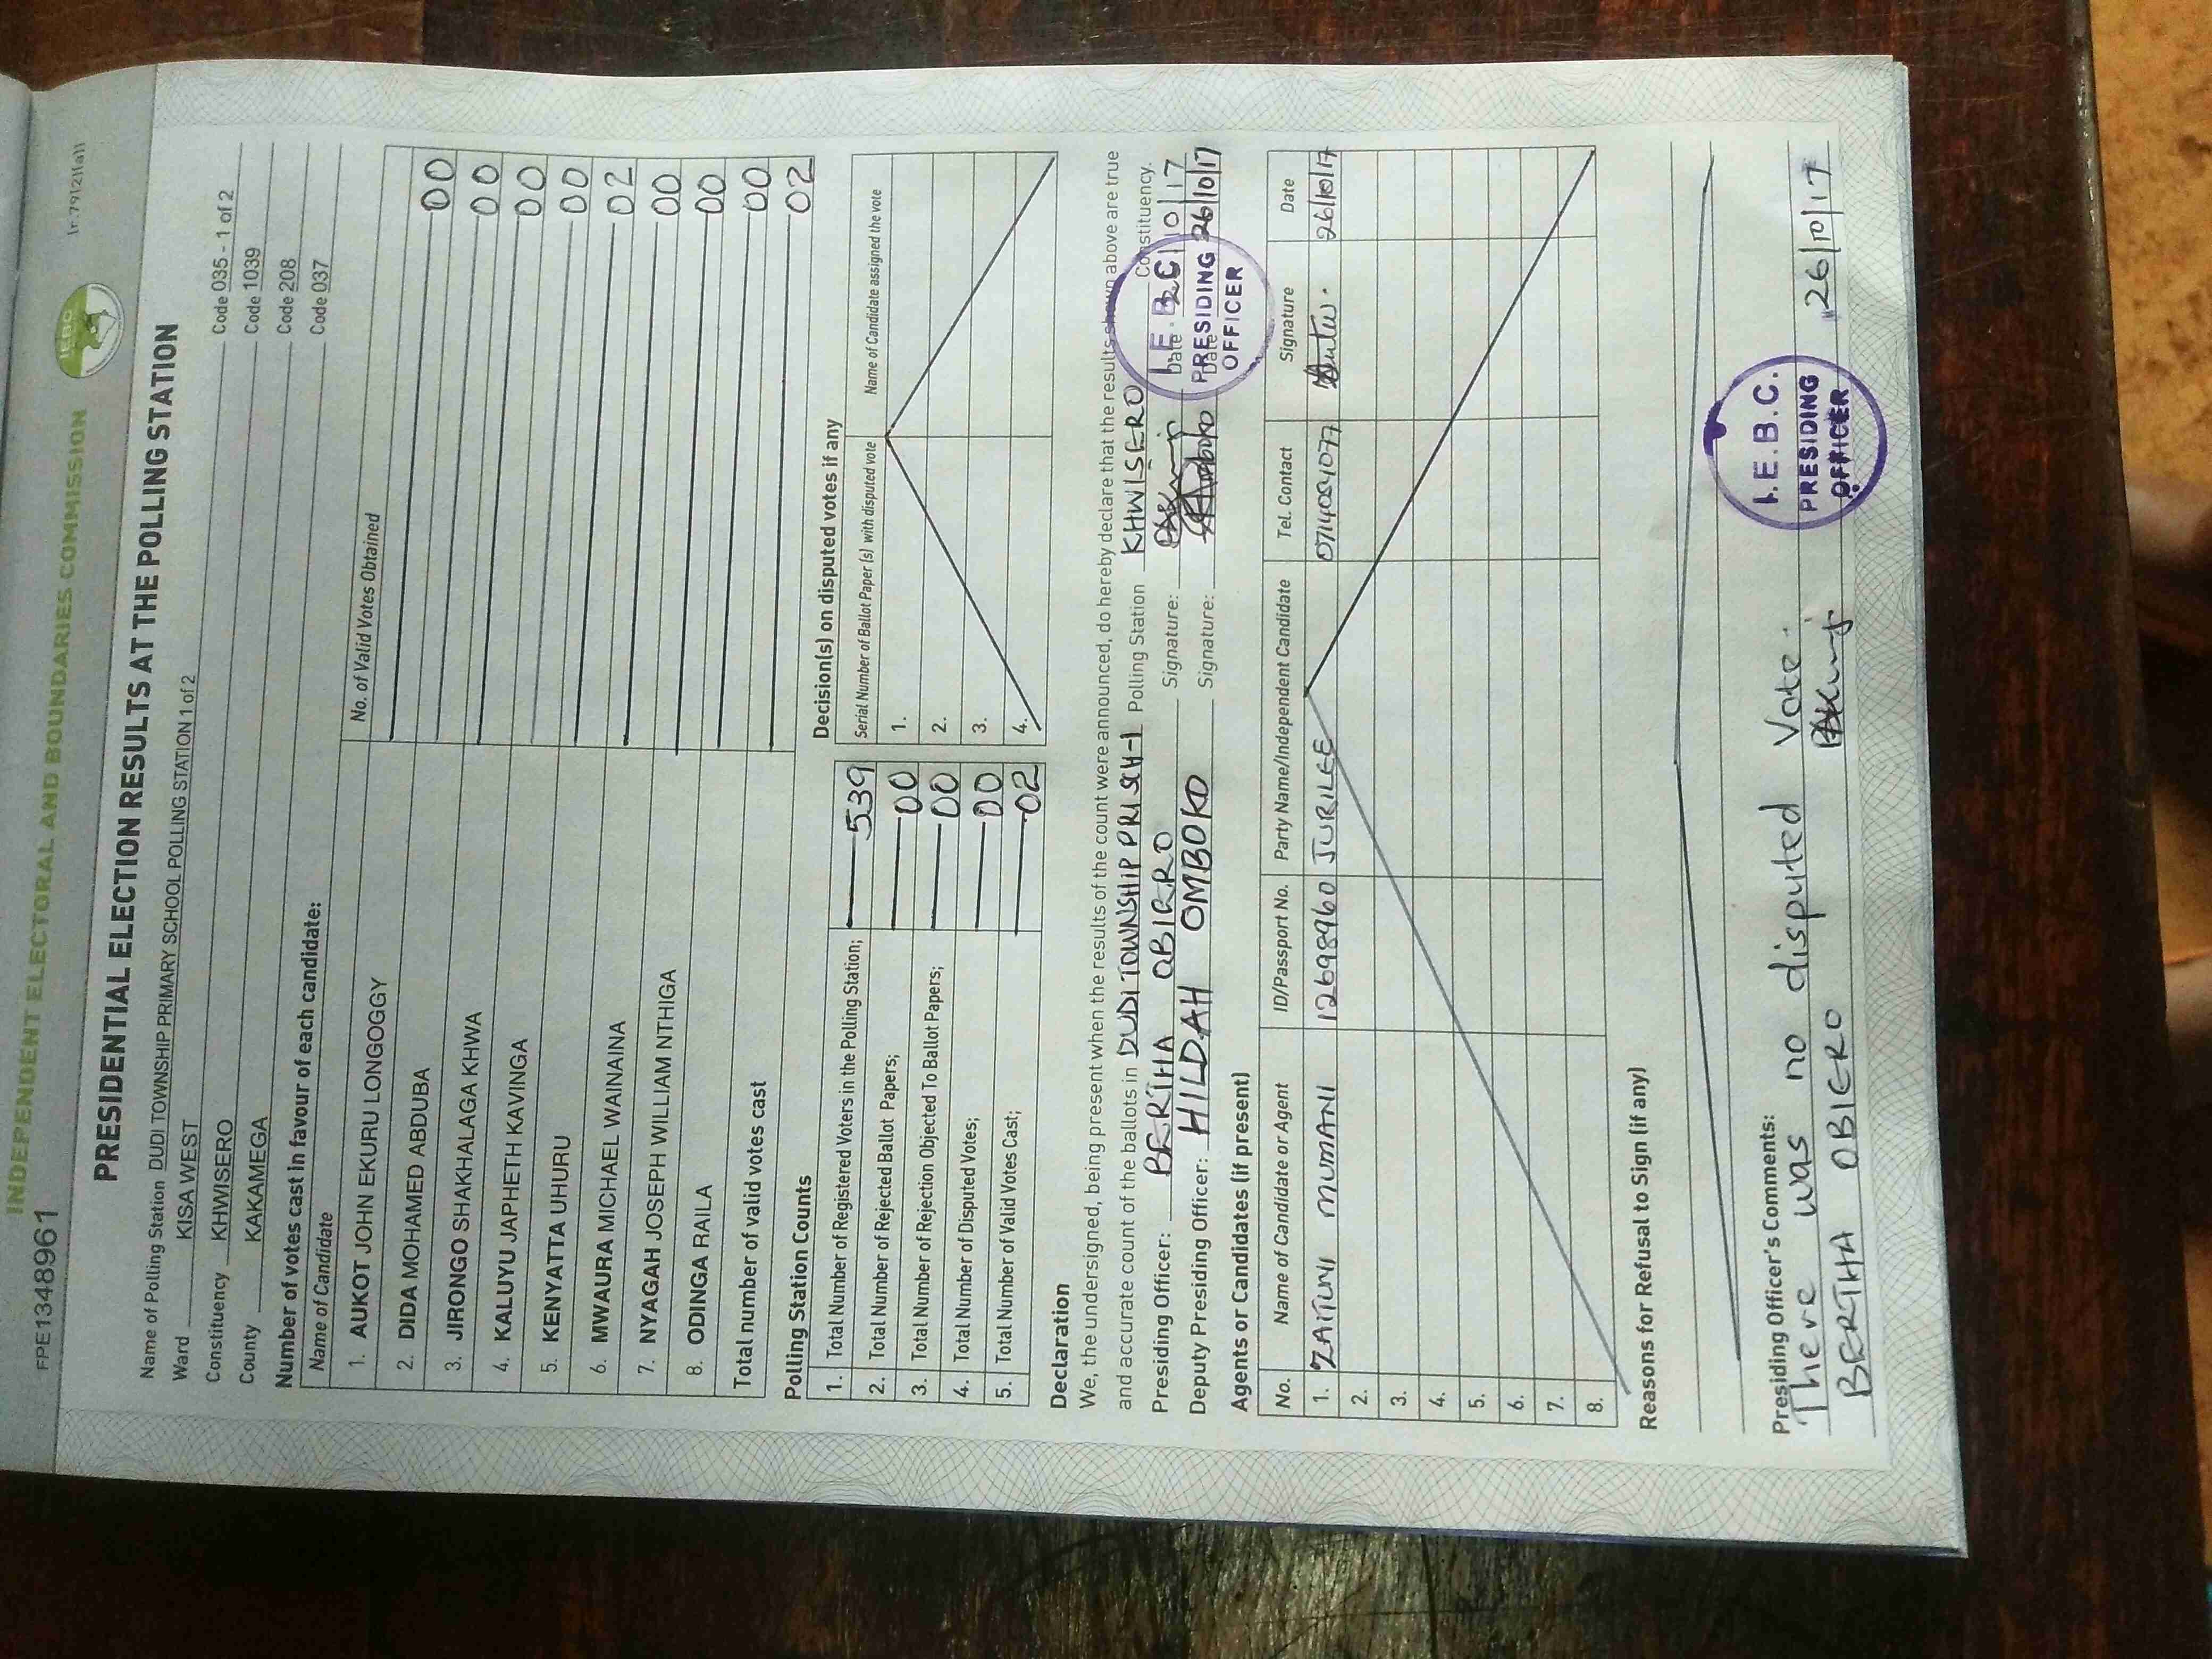 FPE1348961
INDEPENDENT ELECTORAL AND BOUNDARIES COMMISSION
IEBC
PRESIDENTIAL ELECTION RESULTS AT THE POLLING STATION
Name of Polling Station DUDI TOWNSHIP PRIMARY SCHOOL POLLING STATION 1 of 2 Code 035 - 1 of 2
Ward KISA WEST Code 1039
Constituency KHWISERO Code 208
County KAKAMEGA Code 037
Number of votes cast in favour of each candidate:
Name of Candidate No. of Valid Votes Obtained
1. AUKOT JOHN EKURU LONGOGGY 00
2. DIDA MOHAMED ABDUBA 00
3. JIRONGO SHAKHALAGA KHWA 00
4. KALUYU JAPHETH KAVINGA 00
5. KENYATTA UHURU 02
6. MWAURA MICHAEL WAINAINA 00
7. NYAGAH JOSEPH WILLIAM NTHIGA 00
8. ODINGA RAILA 00
Total number of valid votes cast 02
Polling Station Counts
1. Total Number of Registered Voters in the Polling Station; 539
2. Total Number of Rejected Ballot Papers; 00
3. Total Number of Rejection Objected To Ballot Papers; 00
4. Total Number of Disputed Votes; 00
5. Total Number of Valid Votes Cast; 02
Decision(s) on disputed votes if any
Serial Number of Ballot Paper (s) with disputed vote Name of Candidate assigned the vote
1.
2.
3.
4.
Declaration
We, the undersigned, being present when the results of the count were announced, do hereby declare that the results shown above are true
and accurate count of the ballots in DUDI TOWNSHIP PRI SCH-1 Polling Station KHWISERO Constituency.
Presiding Officer: BERTHA OBIERO Signature: Date 26|10|17
Deputy Presiding Officer: HILDAH OMBOKO Signature: Date 26|10|17
I.E.B.C.
PRESIDING
OFFICER
Agents or Candidates (if present)
No. Name of Candidate or Agent ID/Passport No. Party Name/Independent Candidate Tel. Contact Signature Date
1. ZAITUNI MUMANI 12698960 JUBILEE 26|10|17
2.
3.
4.
5.
6.
7.
8.
Reasons for Refusal to Sign (if any)
Presiding Officer's Comments:
There was no disputed Vote.
BERTHA OBIERO 26|10|17
I.E.B.C.
PRESIDING
OFFICER